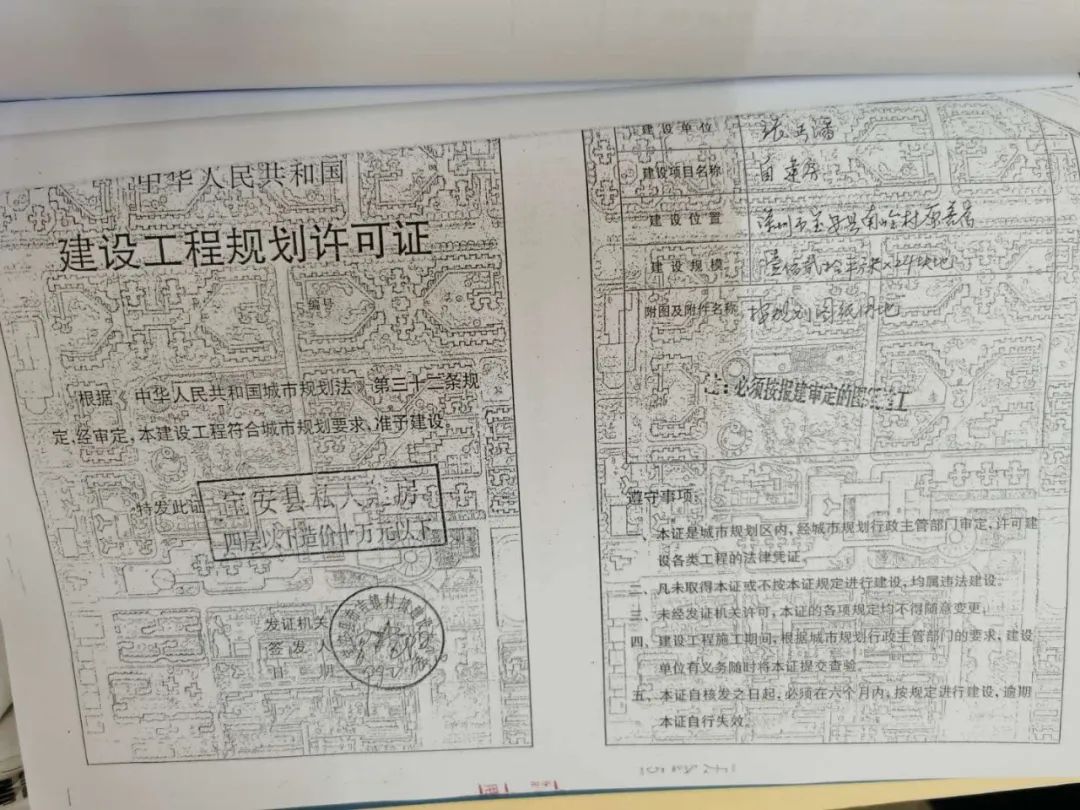 中华人民共和国
建设工程规划许可证
编号
根据《中华人民共和国城市规划法》第三十二条规
定,经审定,本建设工程符合城市规划要求,准予建设。
特发此证
宝安县私人建房
四层以下造价十万元以下
发证机关
签发人
日期
建设单位
建设项目名称
建设位置 深圳市宝安县南岭村
建设规模
附图及附件名称 按规划图纸用地
注:必须按报建审定的图纸施工
遵守事项:
一、本证是城市规划区内,经城市规划行政主管部门审定,许可建
设各类工程的法律凭证。
二、凡未取得本证或不按本证规定进行建设,均属违法建设。
三、未经发证机关许可,本证的各项规定均不得随意变更。
四、建设工程施工期间,根据城市规划行政主管部门的要求,建设
单位有义务随时将本证提交查验。
五、本证自核发之日起,必须在六个月内,按规定进行建设,逾期
本证自行失效。